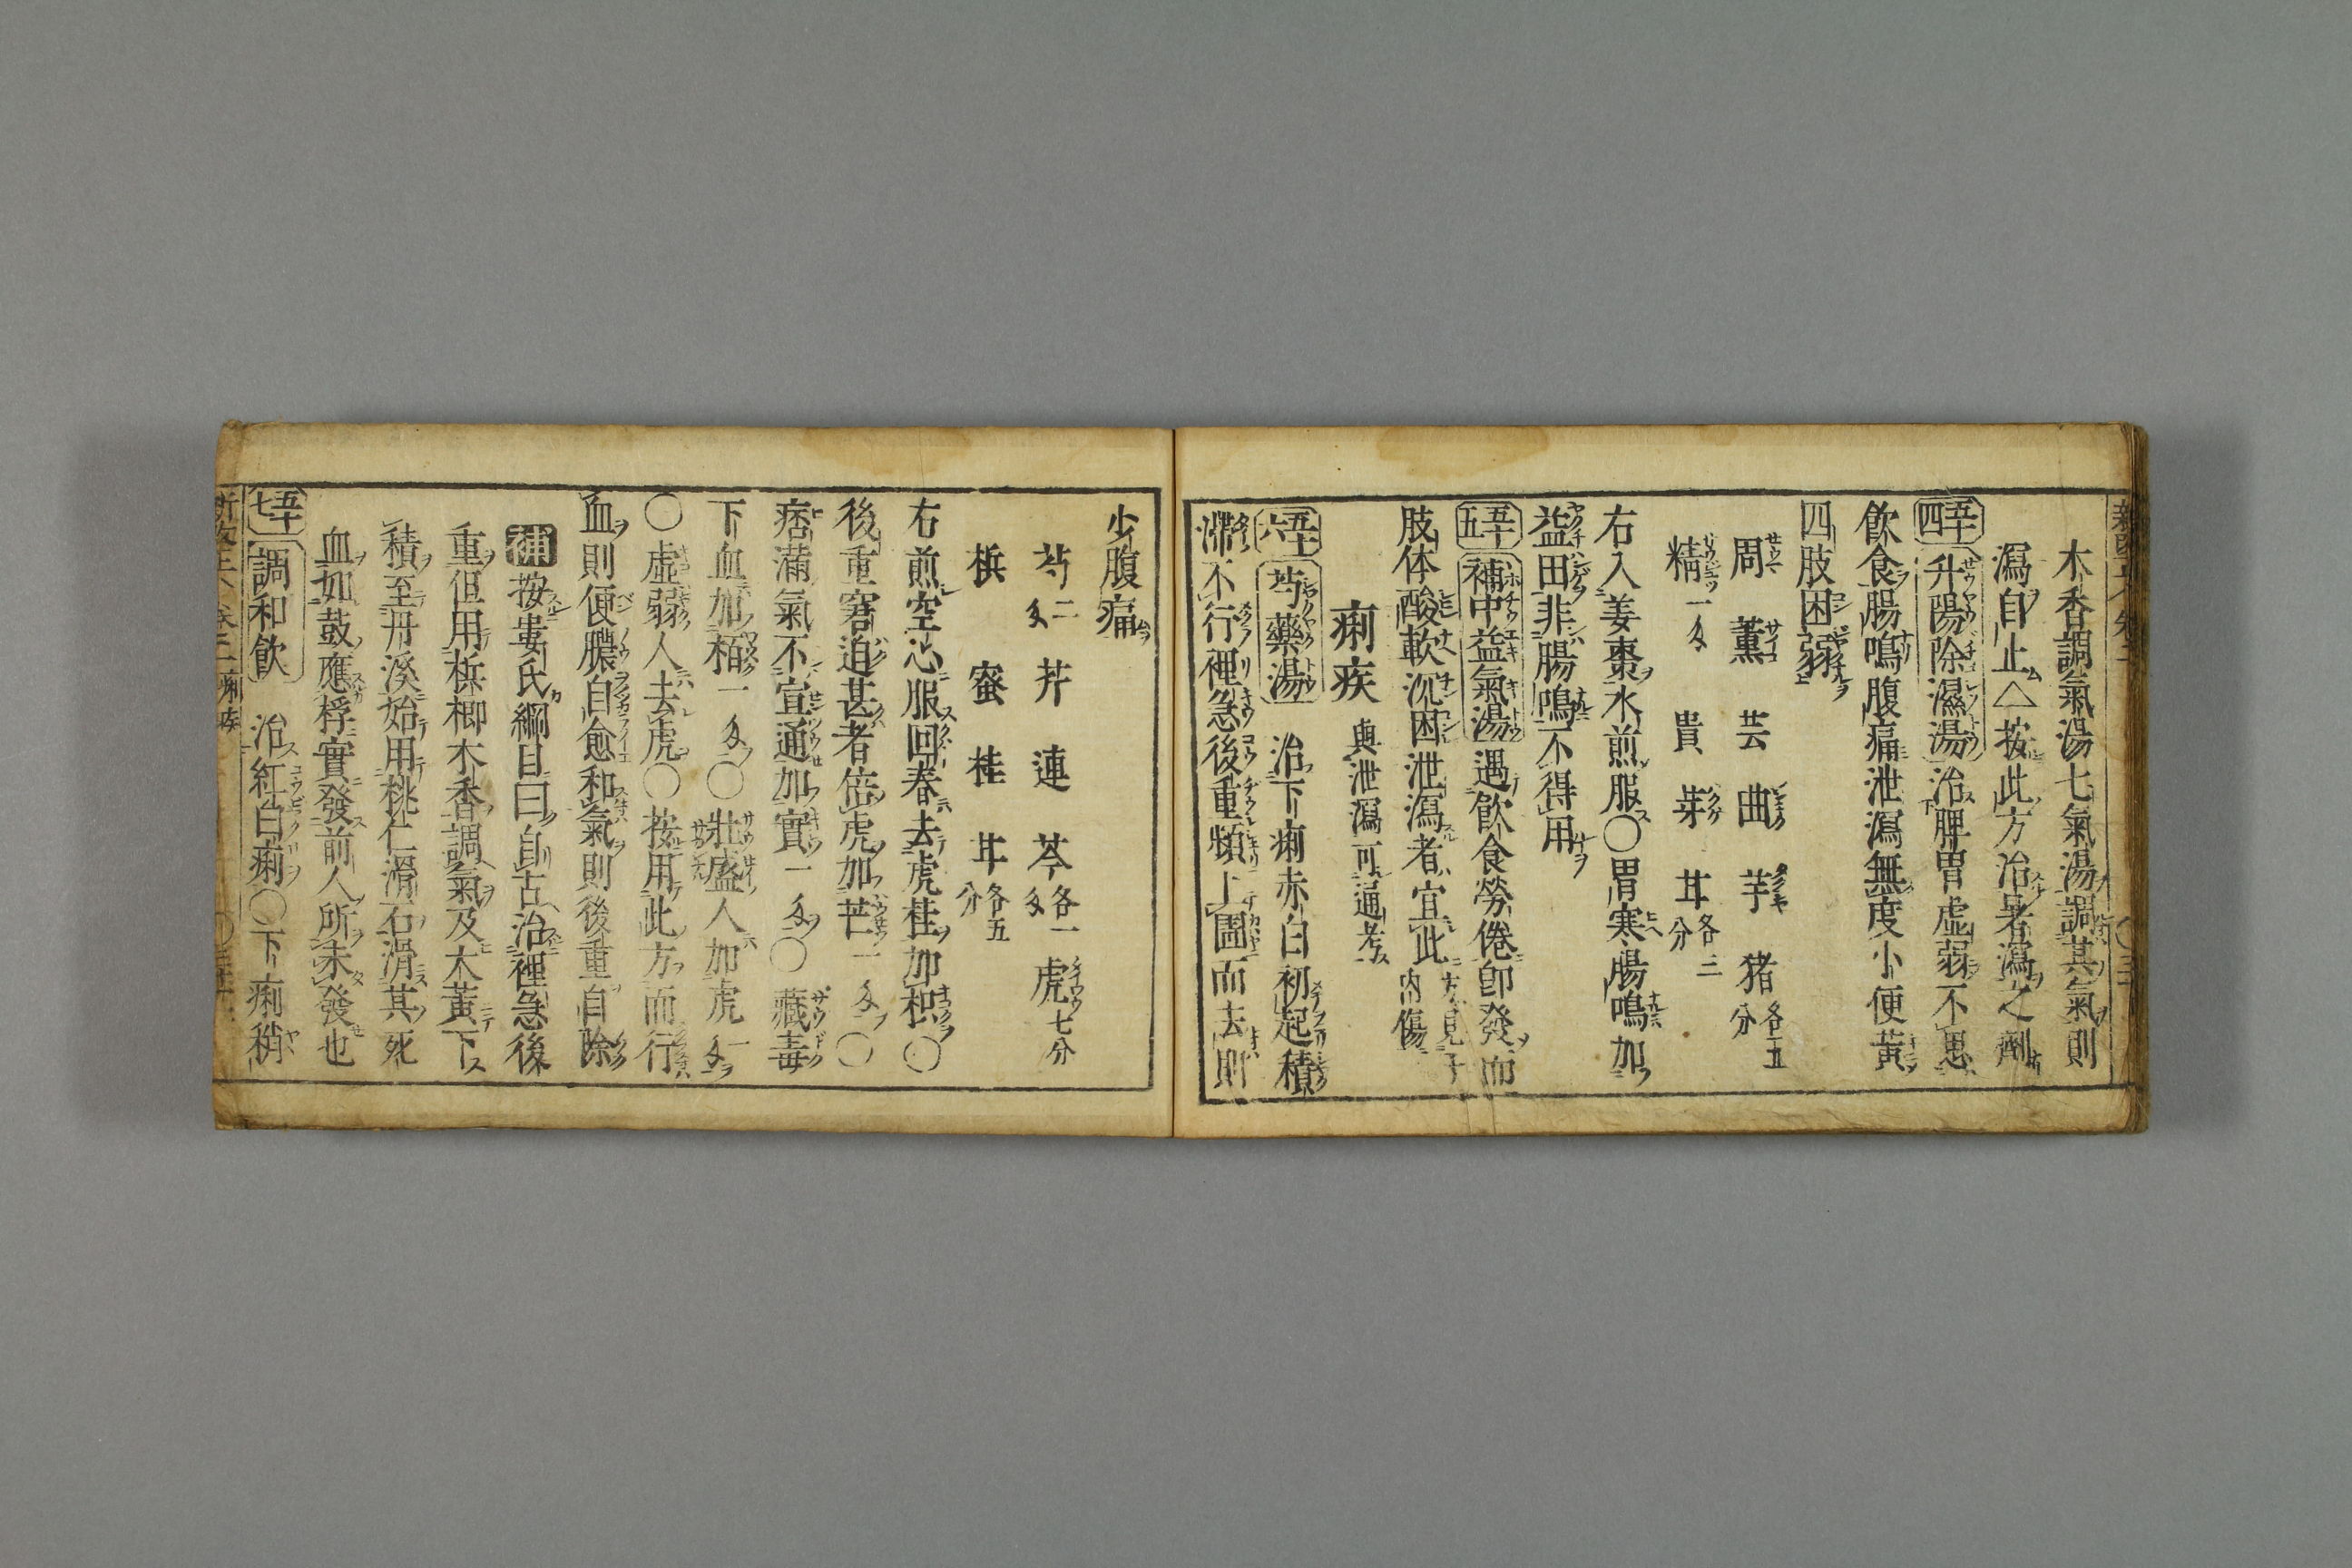 木香調氣湯七氣湯調其氣則
瀉自止△按此方治暑瀉之劑
五十四 升陽除濕湯 治脾胃虛弱不思
飲食腸鳴腹痛泄瀉無度小便黃
四肢困弱
周 薰 芸 曲 芋 猪各五分
精一 貴 芽 耳各三分
右入姜棗水煎服〇胃寒腸鳴加
益田非腸鳴不得用
五十五 補中益氣湯 遇飲食勞倦卽發而
肢体酸軟沉困泄瀉者宜此方見于內傷
痢疾 與泄瀉可通考
五十六 芍藥湯 治下痢赤白初起積
滯不行裡急後重頻上圊而去則
少腹痛
芍二 芹 連 芩各一 虎七分
梹 蜜 桂 耳各五分
右煎空心服回春去虎桂加枳〇
後重窘迫甚者倍虎加芒一〇
痞滿氣不宣通加實一〇藏毒
下血加栢一〇壯盛人加虎一
〇虛弱人去虎〇按用此方而行
血則便膿自愈和氣則後重自除
補 按婁氏綱目曰自古治裡急後
重但用梹榔木香調氣及大黃下
積至丹溪始用桃仁滑石滑其死
血如鼓應桴實發前人所未發也
五十七 調和飲 治紅白痢〇下痢稍
痢疾